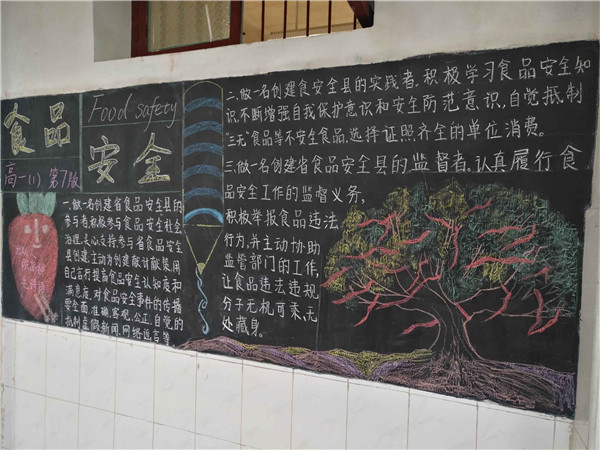 食品
Food safety
安全
高一(1) 第7版
一.做一名创建省食品安全县的
参与者.积极参与食品安全社会
治理.关心支持参与省食品安全
县创建.主动为创建献计献策.用
自己言行提高食品安全认知度和
满意度.对食品安全事件的传播
要全面.准确.客观.公正.自觉的
抵制虚假新闻.网络谣言等
二.做一名创建食安全县的实践者.积极学习食品安全知
识.不断增强自我保护意识和安全防范意识,自觉抵制
“三无”食品等不安全食品,选择证照齐全的单位消费。
三.做一名创建省食品安全县的监督者.认真履行食
品安全工作的监督义务,
积极举报食品违法
行为,并主动协助
监管部门的工作,
让食品违法违规
分子无机可乘.无
处藏身。